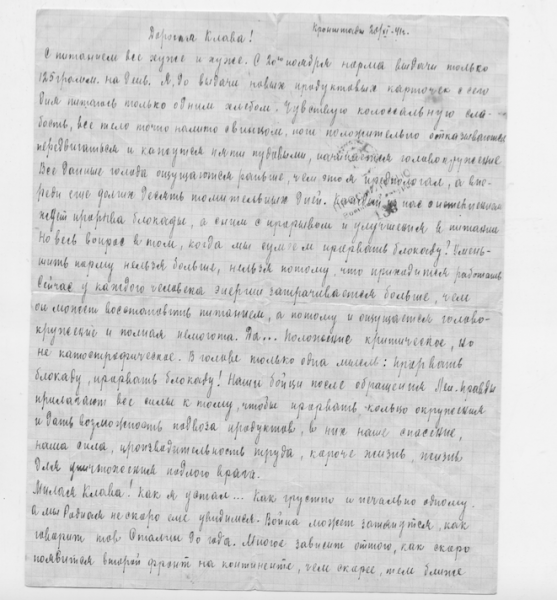 Кронштадт 20/XI-41г.
Дорогая Клава!
С питанием всё хуже и хуже. С 20го ноября норма выдачи только
125 грамм. на день. А до выдачи новых продуктовых карточек с
Дня питаюсь только одним хлебом. Чувствую колоссальную сла-
бость, все тело точно налито свинцом, ноги положительно отказываются
передвигаться и кажутся пудовыми, начинается головокружение
Все данные голода ощущаются раньше, чем этого я предполагал, а впе-
реди еще долгих Десять томительных дней. у нас с нетерпением
ждет прорыва блокады, а с прорывом и улучшения в питании
Но весь вопрос в том, когда мы сумеем прорвать блокаду? Умень-
шить норму нельзя больше, нельзя потому, что приходится работать
Сейчас у каждого человека энергии затрачивается больше, чем
он может восстановить питанием, а потому и ощущается голово-
кружение и полная немогота. Да... Положение критическое, но
не катастрофическое. В голове только одна мысль: прорвать
блокаду, прорвать блокаду! Наши бойцы после обращения Лен. Правды
прилагают все силы к тому, чтобы прорвать кольцо окружения
и дать возможность подвоза продуктов, в них наше спасение,
наша сила, производительность труда, короче жизнь, жизнь
для уничтожения подлого врага.
Милая Клава! Как я устал... Как грустно и печально одному.
а мы Родная не скоро еще увидимся. Война может затянутся, как
говорит тов Сталин до года. Многое зависит оттого, как скоро
появится второй фронт на континенте, чем скорее, тем ближе